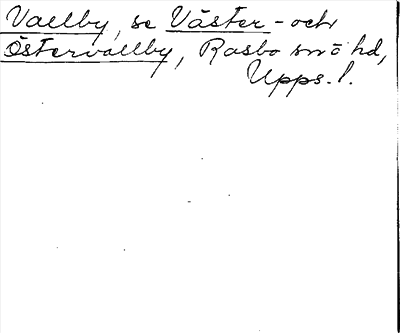 Vallby, se Väster- och
Östervallby, Rasbo snö hd,
Upps. l.